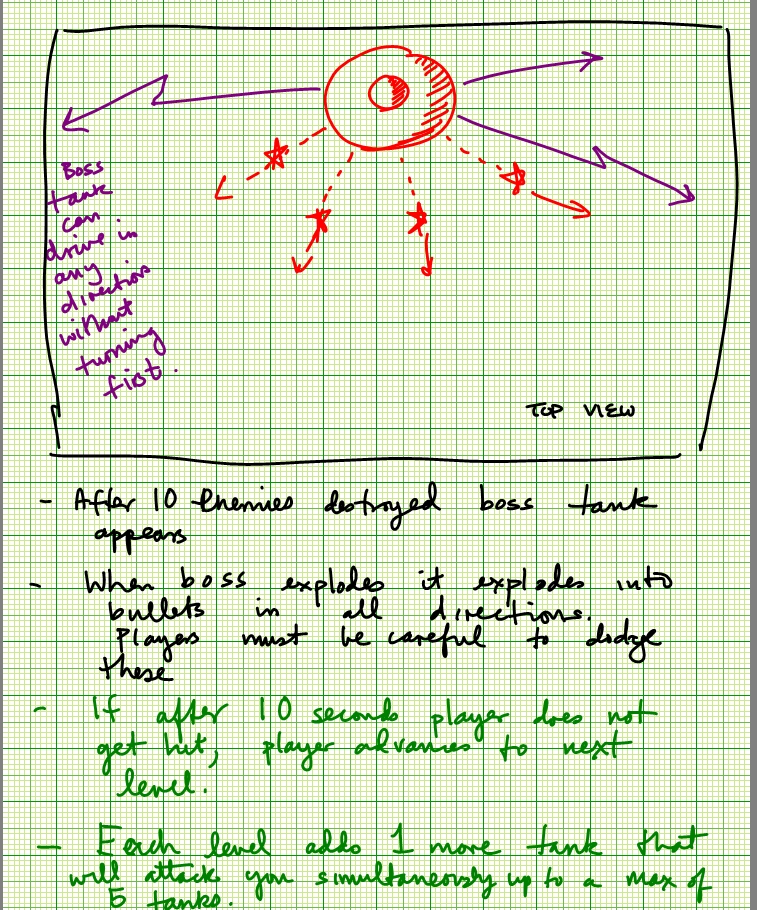 Boss
tank
can
drive in
any
direction
without
turning
first.
TOP VIEW
- After 10 Enemies destroyed boss tank
appears
- When boss explodes it explodes into
bullets in all directions.
Players must be careful to dodge
these
- If after 10 seconds player does not
get hit, player advances to next
level.
- Each level adds 1 more tank that
will attack you simultaneously up to a max of
5 tanks.